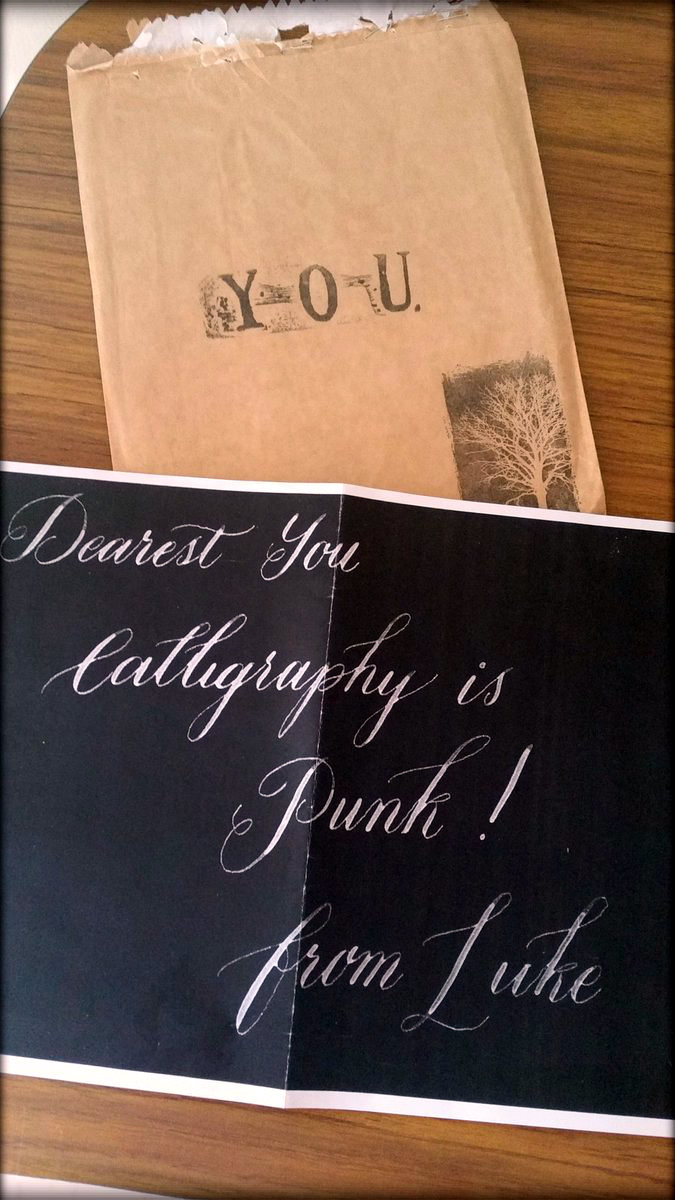 YOU.
Dearest You
Calligraphy is
Punk!
from Luke